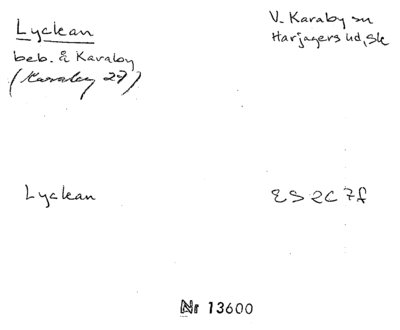 Lyckan
V. Karaby sn
beb. å Karaby
Harjagers hd, Sk
(Karaby 27)
Lyckan
2S 2C 7f
Nr 13600